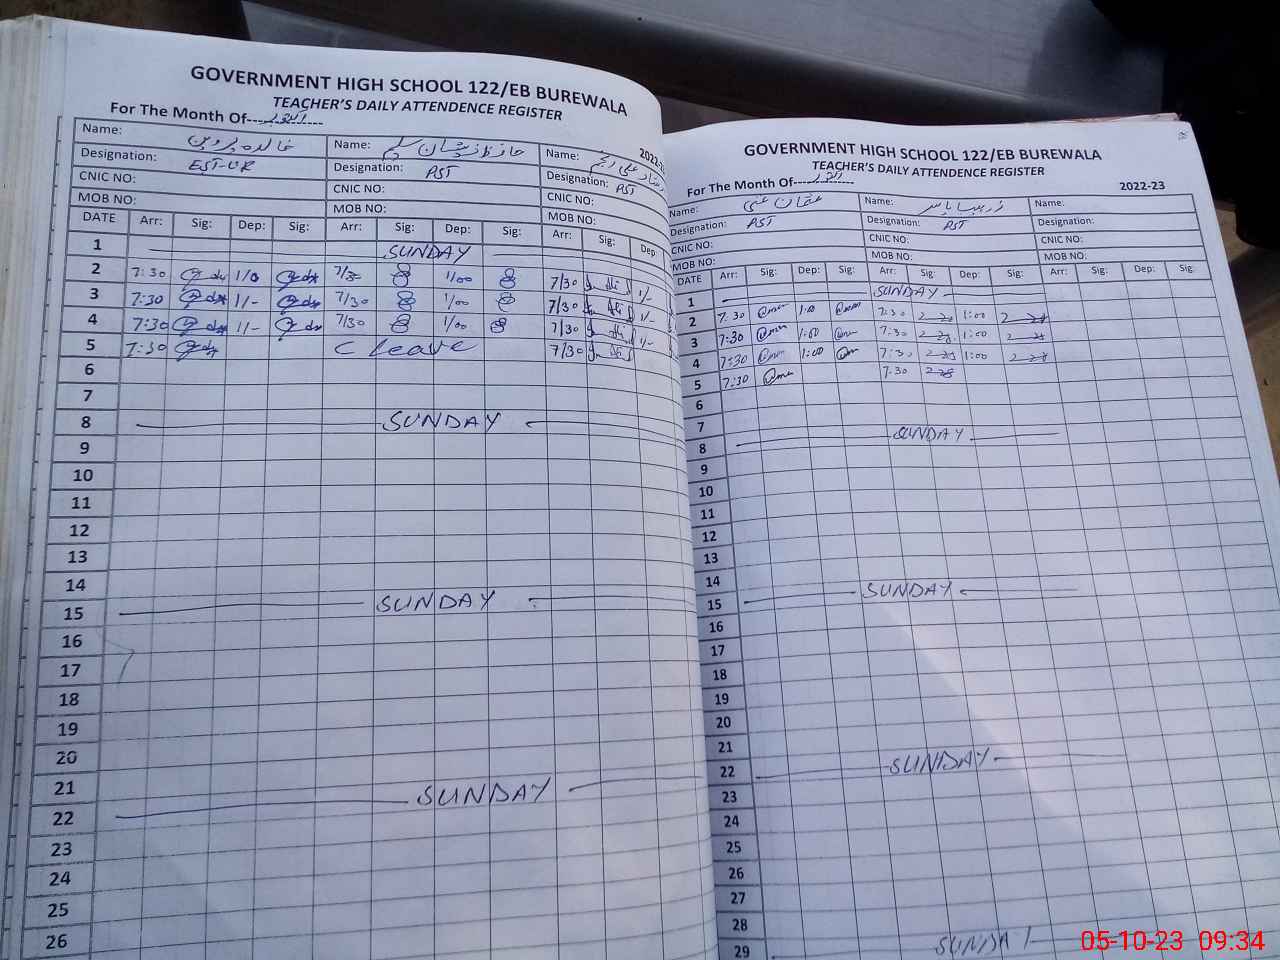 GOVERNMENT HIGH SCHOOL 122/EB BUREWALA
TEACHER'S DAILY ATTENDENCE REGISTER
For The Month Of- اکتوبر
2022-2
Name: خالدہ پروین Name: Name:
Designation: EST-UR Designation: PST Designation: PST
CNIC NO: CNIC NO: CNIC NO:
MOB NO: MOB NO:
DATE Arr: Sig: Dep: Sig: Arr: Sig: Dep: Sig: Arr: Sig: Dep
1 SUNDAY
2 7:30 1/0 7/30 1/00 7/30 1/-
3 7:30 1/- 7/30 1/00 7/30 1/-
4 7:30 1/- 7/30 1/00 7/30 1/-
5 7:30 C leave 7/30
6
7
8 SUNDAY
9
10
11
12
13
14
15 SUNDAY
16
17
18
19
20
21
22 SUNDAY
23
24
25
26
GOVERNMENT HIGH SCHOOL 122/EB BUREWALA
TEACHER'S DAILY ATTENDENCE REGISTER
For The Month Of- اکتوبر
2022-23
Name: عثمان غنی Name: Name:
Designation: PST Designation: PST Designation:
CNIC NO: CNIC NO: CNIC NO:
MOB NO: MOB NO: MOB NO:
DATE Arr: Sig: Dep: Sig: Arr: Sig: Dep: Sig: Arr: Sig: Dep: Sig:
1 SUNDAY
2 7:30 1:00 7:30 1:00
3 7:30 1:00 7:30 1:00
4 7:30 1:00 7:30 1:00
5 7:30 7:30
6
7
8 SUNDAY
9
10
11
12
13
14
15 SUNDAY
16
17
18
19
20
21
22 SUNDAY
23
24
25
26
27
28
29 SUNDAY
05-10-23 09:34